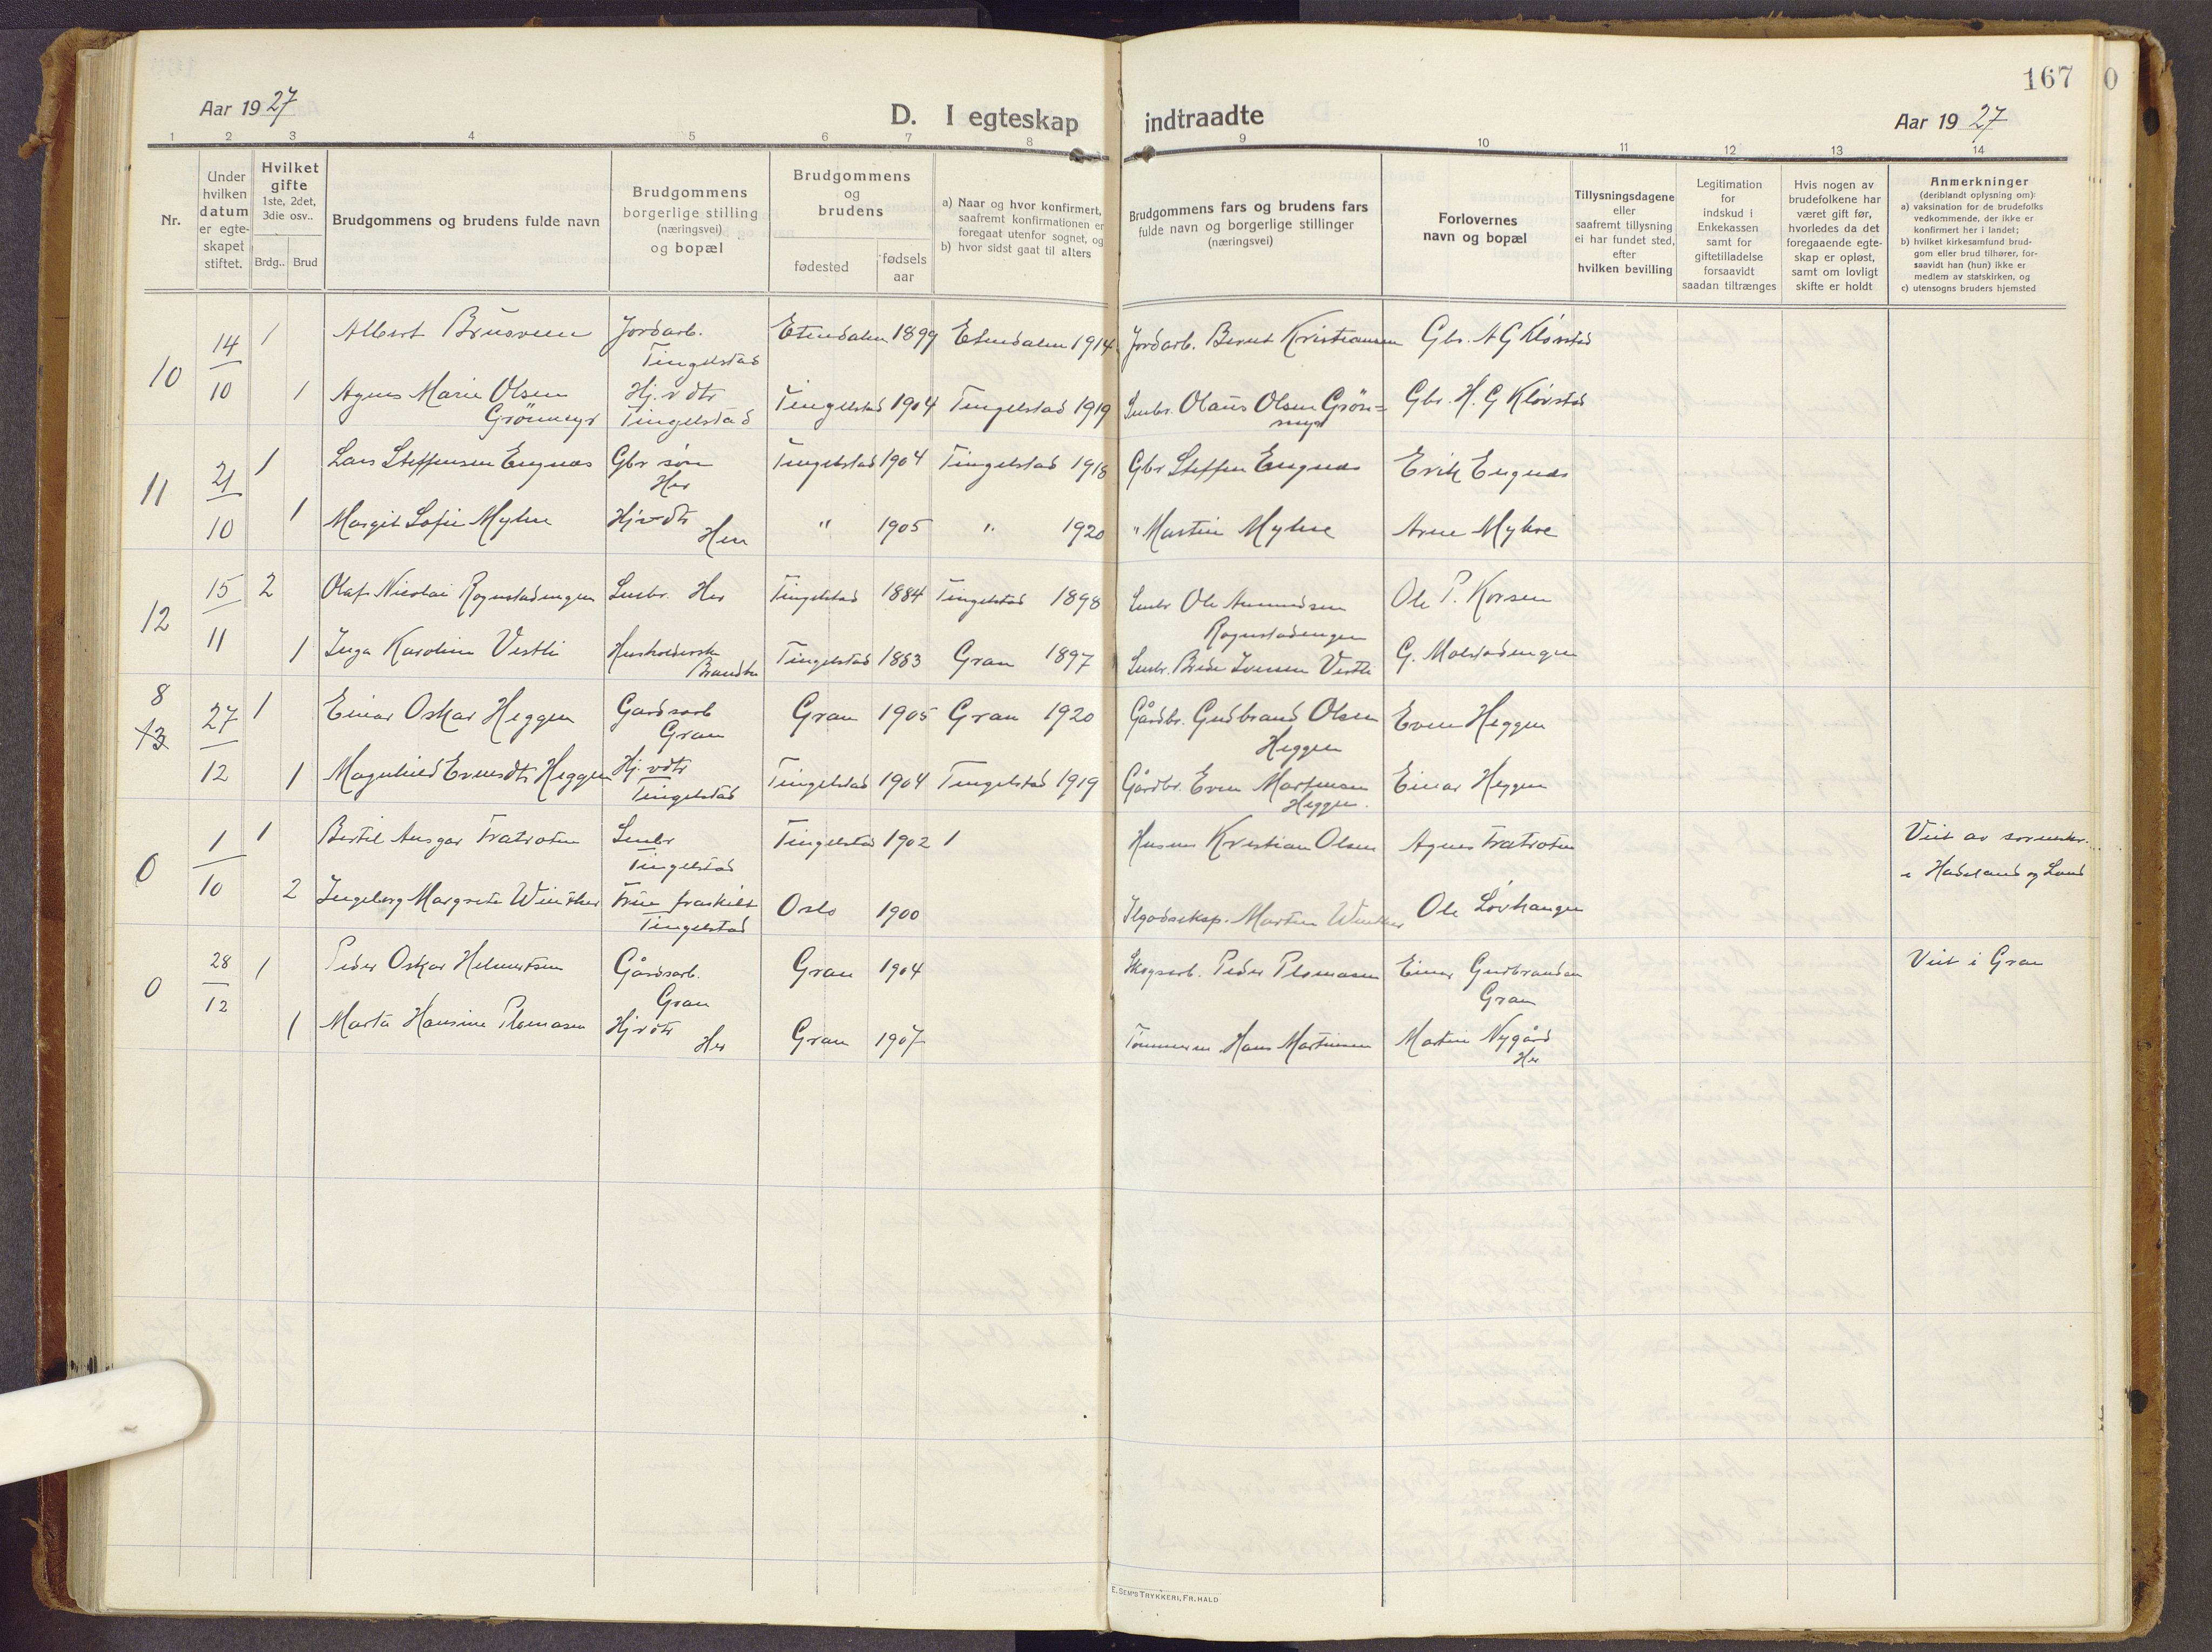 167 0
Aar 1927
D. I egteskap indtraadte
Aar 1927
1 2 3 4 5 6 7 8 9 10 11 12 13 14
Nr.
Under
hvilken
datum
er egte-
skapet
stiftet.
Hvilket
gifte
1ste, 2det,
3die osv..
Brdg.. Brud
Brudgommens og brudens fulde navn
Brudgommens
borgerlige stilling
(næringsvei)
og bopæl
Brudgommens
og
brudens
fødested
fødsels
aar
a) Naar og hvor konfirmert,
saafremt konfirmationen er
foregaat utenfor sognet, og
b) hvor sidst gaat til alters
Brudgommens fars og brudens fars
fulde navn og borgerlige stillinger
(næringsvei)
Forlovernes
navn og bopæl
Tillysningsdagene
eller
saafremt tillysning
ei har fundet sted,
efter
hvilken bevilling
Legitimation
for
indskud i
Enkekassen
samt for
giftetilladelse
forsaavidt
saadan tiltrænges
Hvis nogen av
brudefolkene har
været gift før,
hvorledes da det
foregaaende egte-
skap er opløst,
samt om lovligt
skifte er holdt
Anmerkninger
(deriblandt oplysning om):
a) vaksination for de brudefolks
vedkommende, der ikke er
konfirmert her i landet;
b) hvilket kirkesamfund brud-
gom eller brud tilhører, for-
saavidt han (hun) ikke er
medlem av statskirken, og
c) utensogns bruders hjemsted
10 14/10 1 Albert Brusveen Jordarb. Tingelstad Etnedalen 1899 Etnedalen 1914 Jordarb. Bernt Kristiansen Gbr. A G Kløvstad
1 Agnes Marie Olsen Grönmyr Hj. v dtr Tingelstad Tingelstad 1904 Tingelstad 1919 Smbr. Olaus Olsen Grön=myr Gbr. H. G Kløvstad
11 21/10 1 Lars Steffensen Engnæs Gbr søn Her Tingelstad 1904 Tingelstad 1918 Gbr Steffen Engnæs Erik Engnæs
1 Margit Sofie Myhre Hjvdtr Her " 1905 " 1920 " Martin Myhre Arne Myhre
12 15/11 2 Olaf Nicolai Rognstadengen Smbr. Her Tingelstad 1884 Tingelstad 1898 Smbr Ole Amundsen Rognstadengen Ole P. Korsen
1 Inga Karoline Vestli Husholderske Brandbu Tingelstad 1883 Gran 1897 Smbr. Brede Iversen Vestli G. Molstadengen
8 13 27/12 1 Einar Oskar Heggen Gardsarb Gran Gran 1905 Gran 1920 Gårdbr. Gudbrand Olsen Heggen Even Heggen
1 Magnhild Evensdtr Heggen Hj. vdtr Tingelstad Tingelstad 1904 Tingelstad 1919 Gårdbr. Even Martinsen Heggen. Einar Heggen
0 1/10 1 Bertil Ansgar Trætroten Smbr Tingelstad Tingelstad 1902 1 Husm Kristian Olsen Agnes Trætroten Viet av sorenskr. i Hadeland og Land
2 Ingeborg Margrete Winther Frue fraskilt Tingelstad Oslo 1900 Martin Winther Ole Løvhaugen
0 28/12 1 Peder Oskar Helmersen Gårdsarb. Gran Gran 1904 Skogsarb. Peder Plomasen Einar Gudbrandsen Gran Viet i Gran
1 Marta Hansine Plomasen Hjvdtr Her Gran 1907 Tømmerm Hans Martinsen Martin Nygård Her
E. SEM'S TRYKKERI, FR.HALD